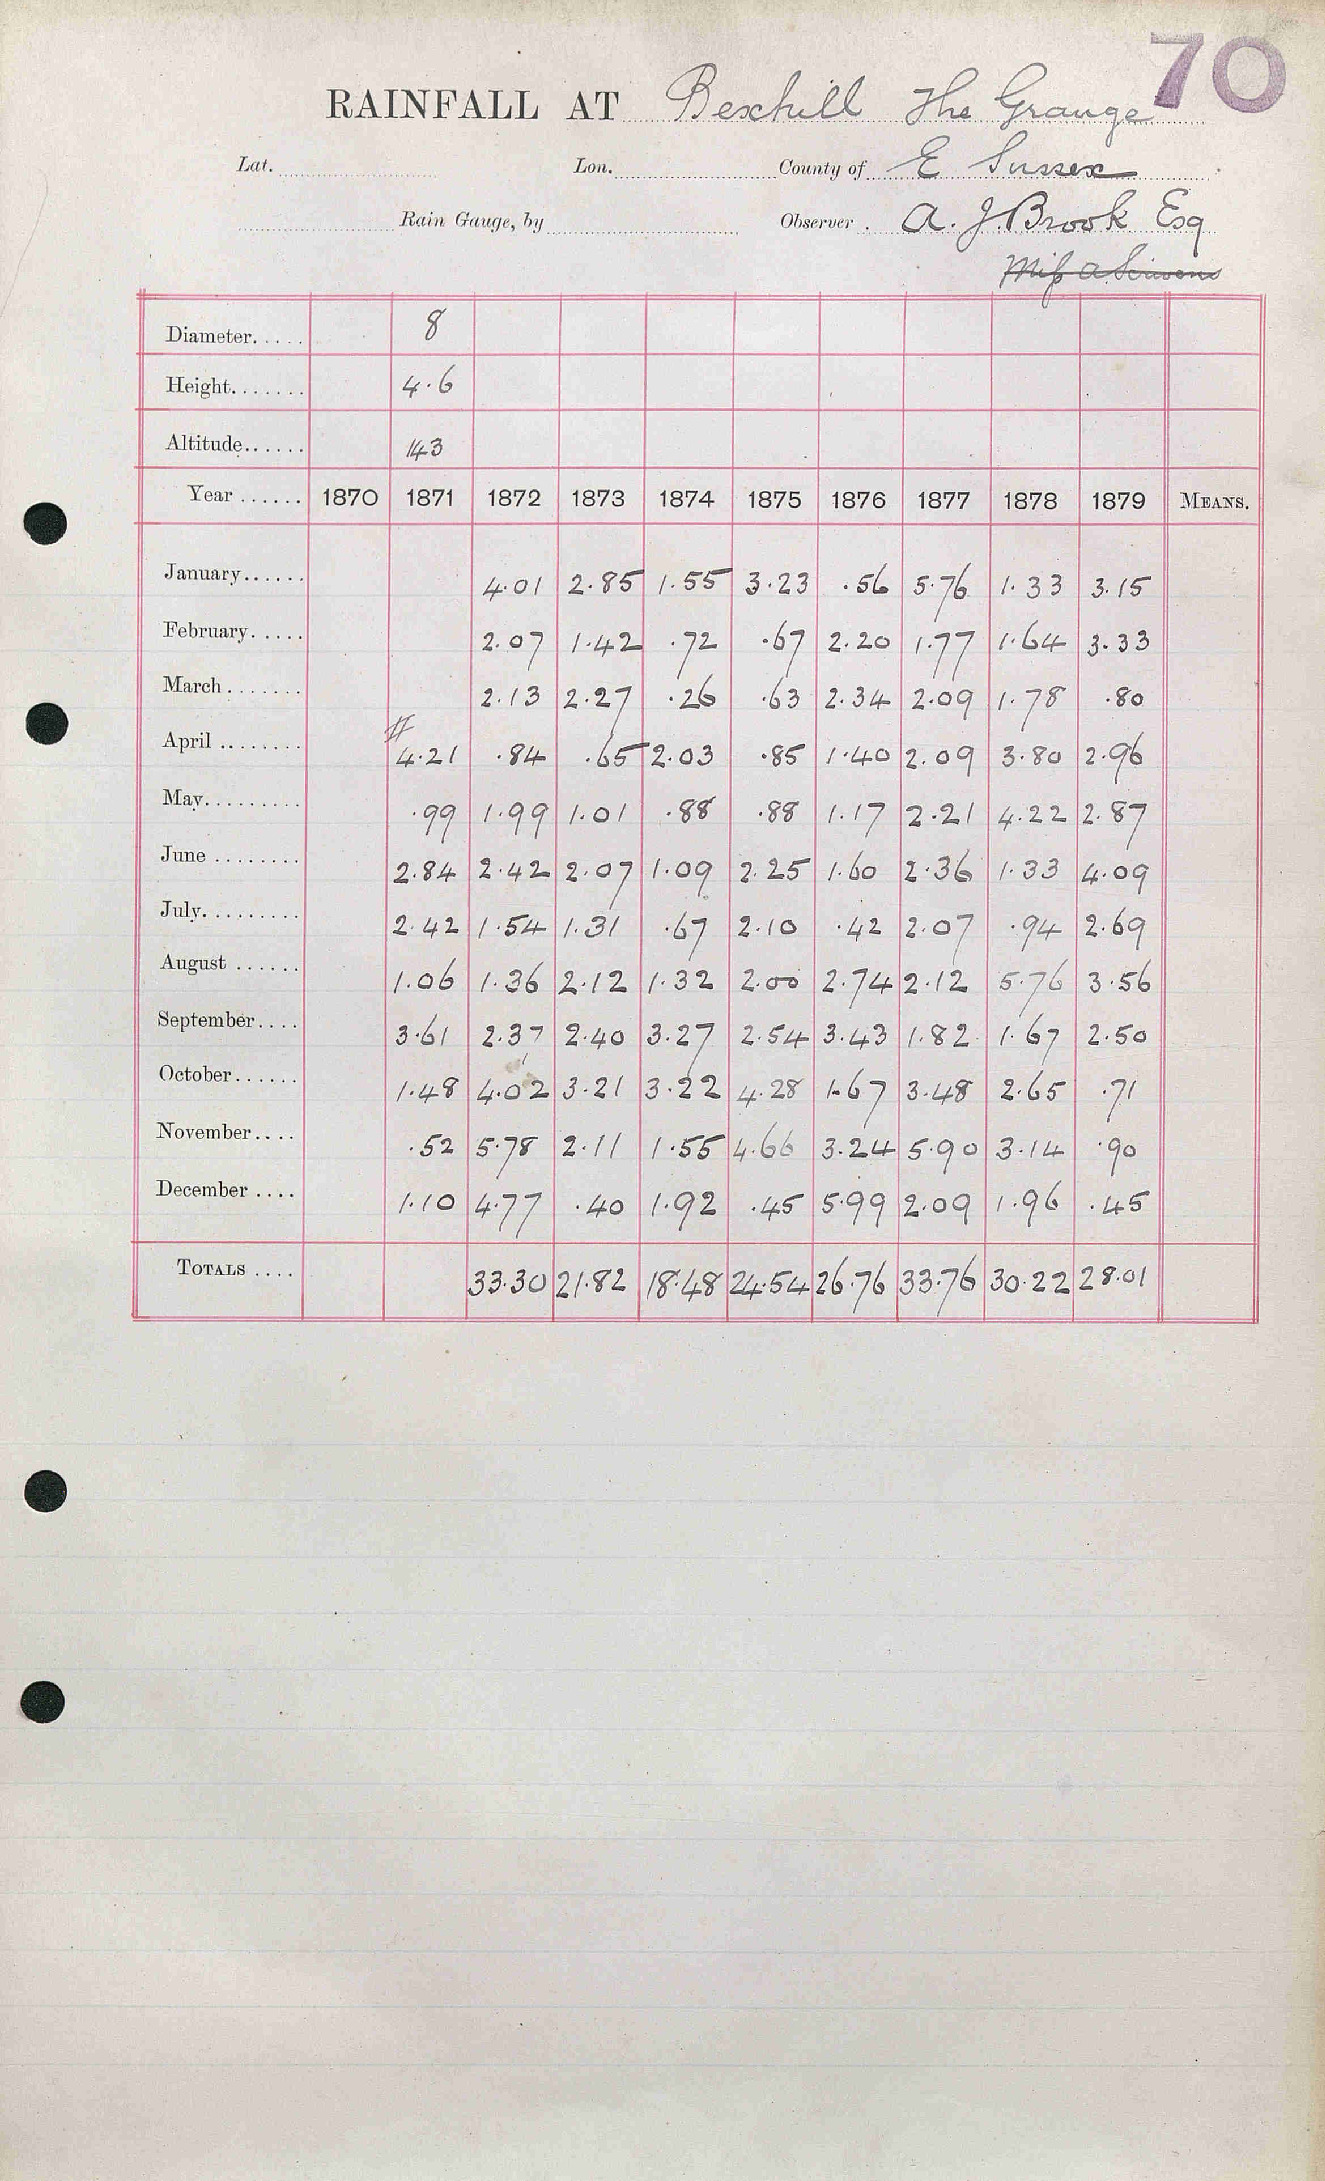 70
RAINFALL AT Bexhill The Grange
Lat. Lon. County of E Sussex
Rain Gauge, by Observer . A. J. Brook Esq
Miss A
Diameter..... 8
Height....... 4.6
Altitude...... 143
Year ...... 1870 1871 1872 1873 1874 1875 1876 1877 1878 1879 MEANS.
January...... 4.01 2.85 1.55 3.23 .56 5.76 1.33 3.15
February..... 2.07 1.42 .72 .67 2.20 1.77 1.64 3.33
March ....... 2.13 2.27 .26 .63 2.34 2.09 1.78 .80
April ........ 4.21 .84 .65 2.03 .85 1.40 2.09 3.80 2.96
May......... .99 1.99 1.01 .88 .88 1.17 2.21 4.22 2.87
June ........ 2.84 2.42 2.07 1.09 2.25 1.60 2.36 1.33 4.09
July......... 2.42 1.54 1.31 .67 2.10 .42 2.07 .94 2.69
August ...... 1.06 1.36 2.12 1.32 2.00 2.74 2.12 5.76 3.56
September.... 3.61 2.37 2.40 3.27 2.54 3.43 1.82 1.67 2.50
October...... 1.48 4.02 3.21 3.22 4.28 1.67 3.48 2.65 .71
November.... .52 5.78 2.11 1.55 4.66 3.24 5.90 3.14 .90
December .... 1.10 4.77 .40 1.92 .45 5.99 2.09 1.96 .45
TOTALS .... 33.30 21.82 18.48 24.54 26.76 33.76 30.22 28.01